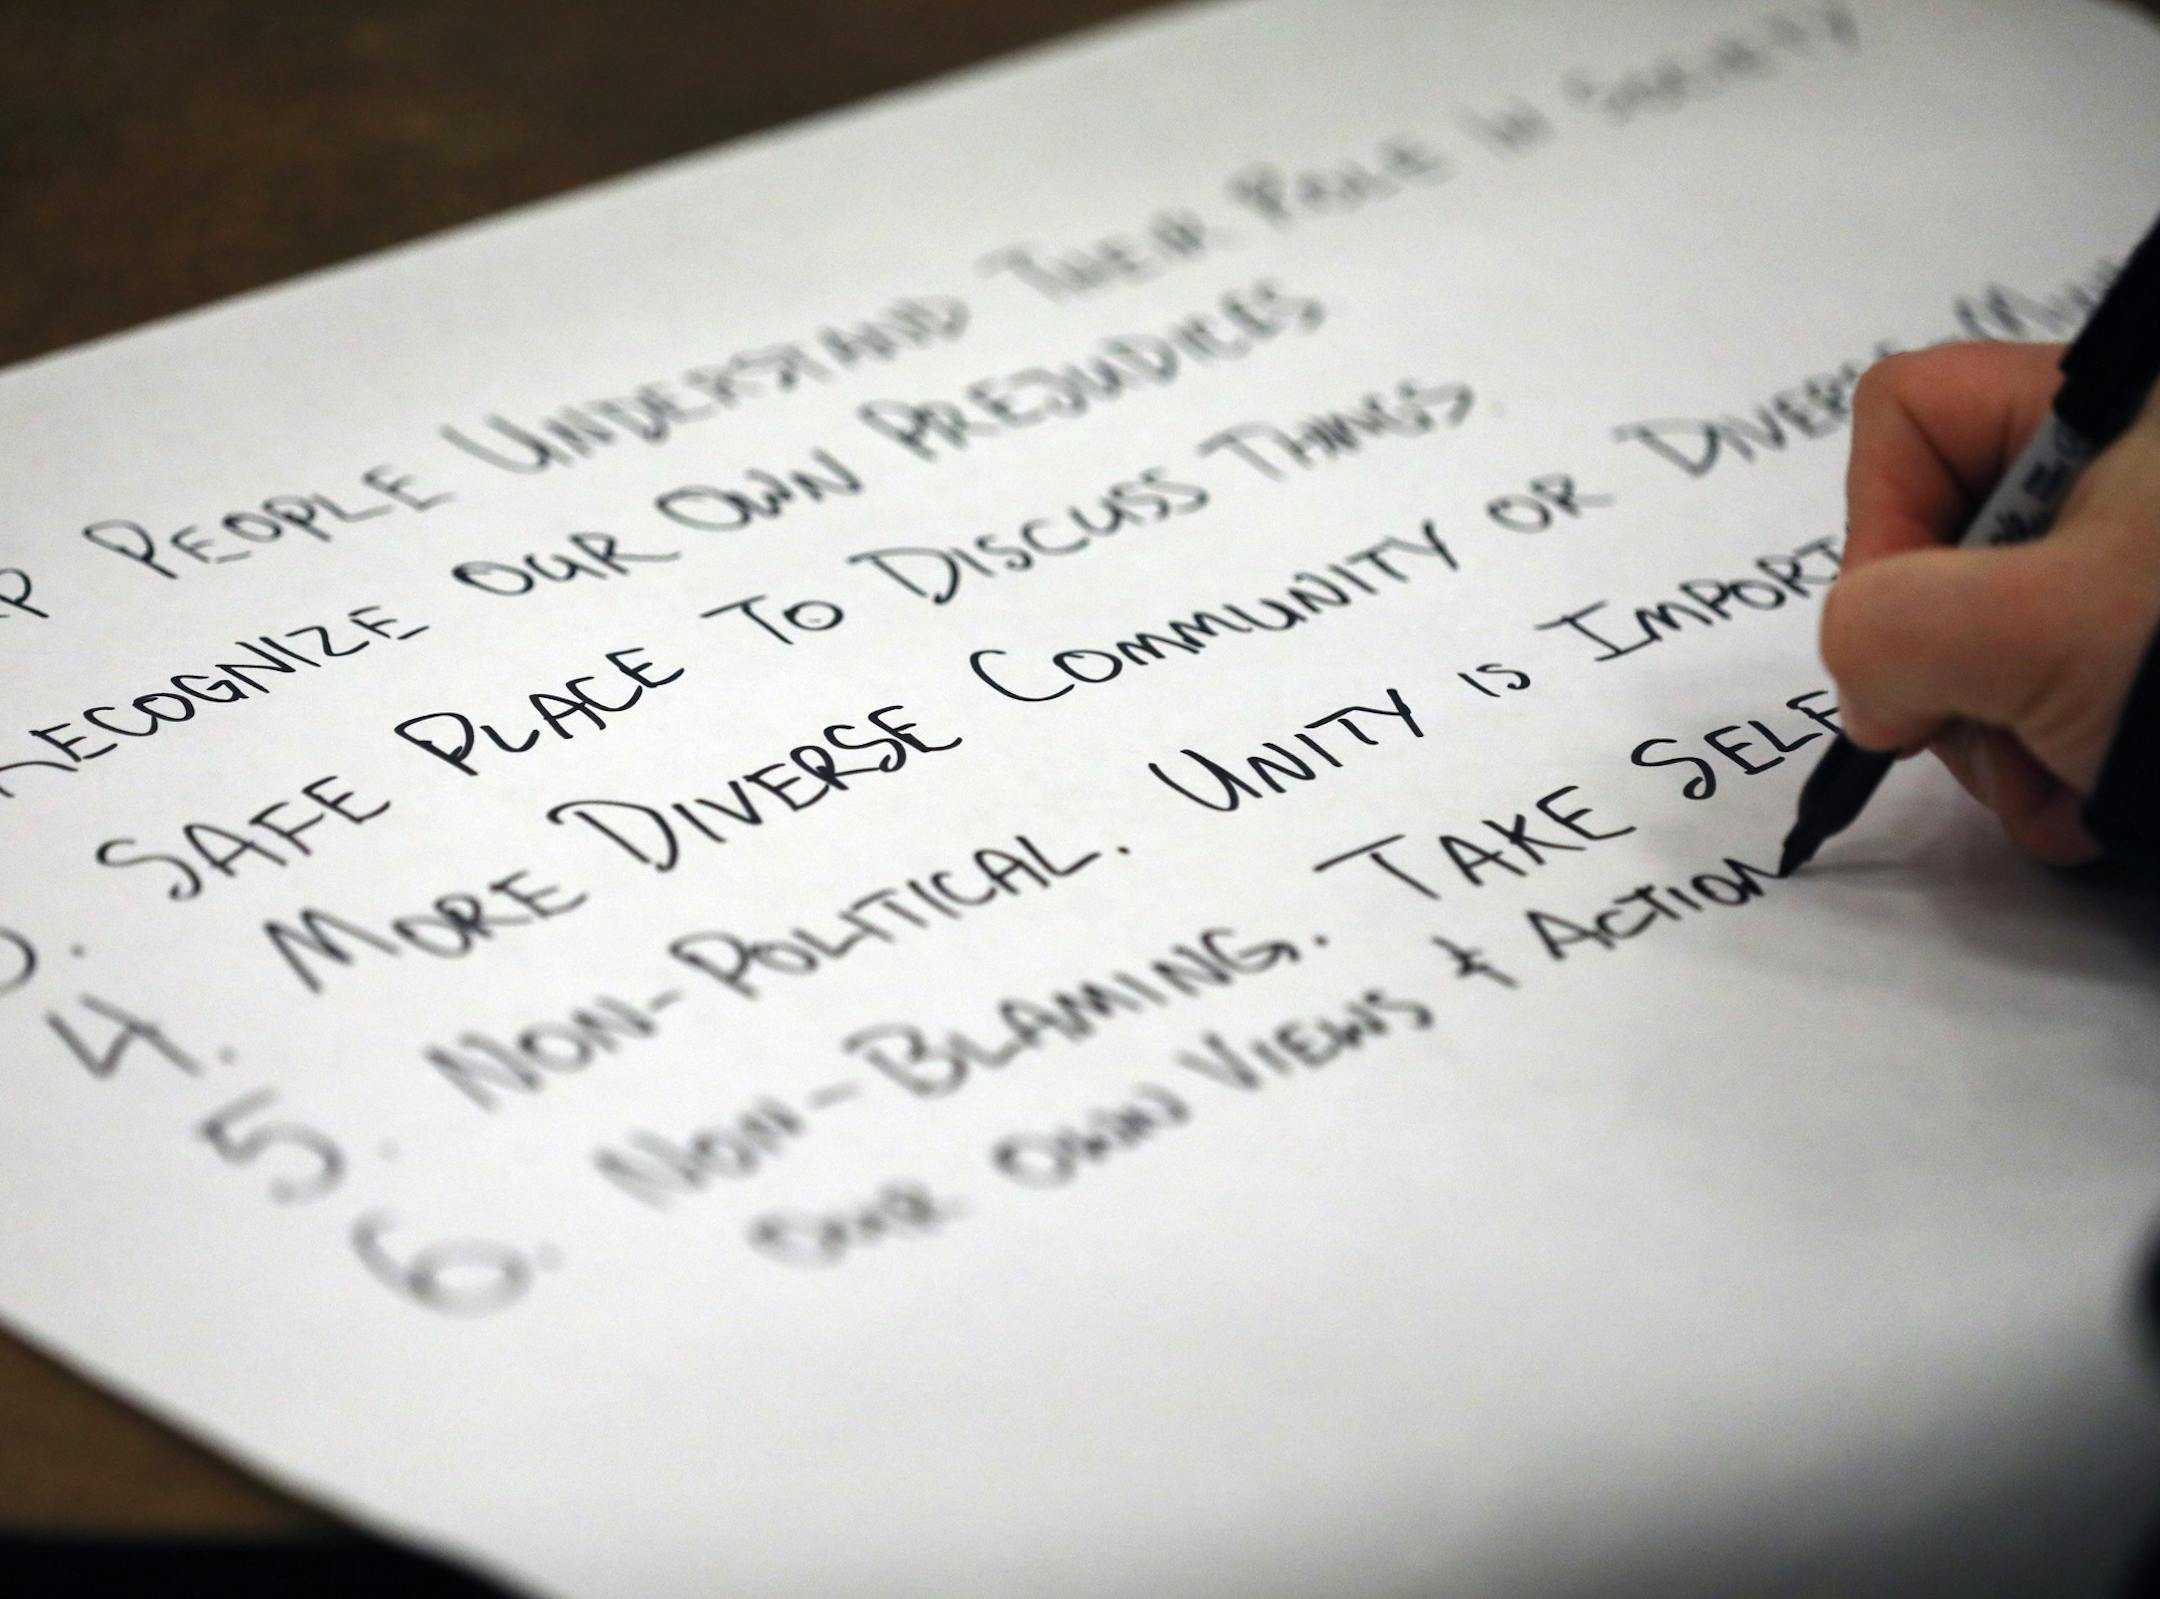 PEOPLE UNDERSTAND THEIR ROLE IN SOCIETY
RECOGNIZE OUR OWN PREJUDICES
SAFE PLACE TO DISCUSS THINGS.
4. MORE DIVERSE COMMUNITY OR DIVERSE
5. NON-POLITICAL. UNITY IS IMPORT
6. NON-BLAMING. TAKE SELF
OUR OWN VIEWS & ACTION